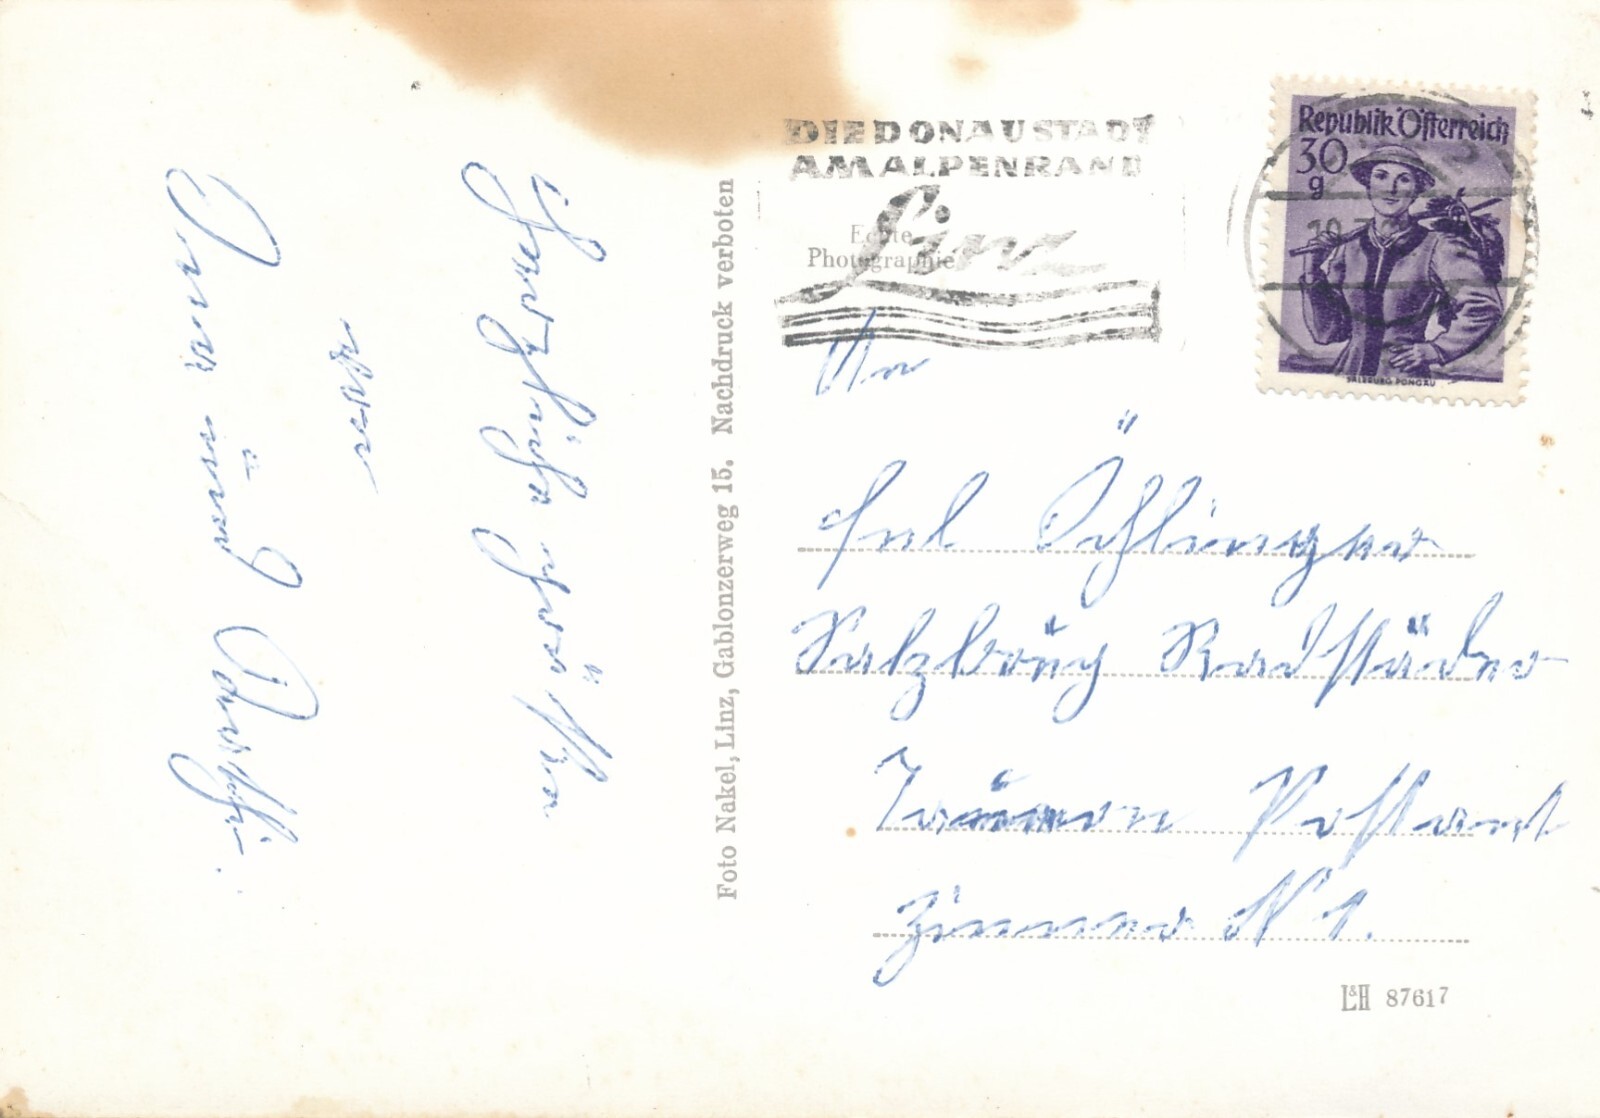 DIE DONAUSTADT
AM ALPENRAND
Linz
Echte
Photographie
Republik Österreich
30
g
SALZBURG PONGAU
An
Frl Öhlinger
Salzburg
Postamt
Zimmer N 1.
Foto Nakel, Linz, Gablonzerweg 15. Nachdruck verboten
Herzliche Grüße
von
und
L&H 87617